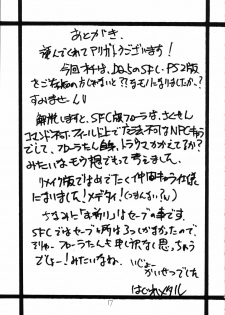 あとがき
読んでくれてアリガトうございます！
今回本は、DQ5のSFC・PS2版
をご存知の方じゃないと??なモノになりましたか・・?
すみませーん
解説しますと、SFC版フローラは、
フィールド上でも NPCキャラ
でして、フローラたん自身、トラウマかかえてるか?
みたいなモウ想でもって考えました。
リメイク版ではめでたく仲間キャラ
になりました！メデタイ！
ちなみに「お祈り」はセーブの事です。
SFCではセーブ
フローラたんに申し訳なく思っちゃう
でしょー！みたいなね。
かいせつでした
はぐれメタル
17